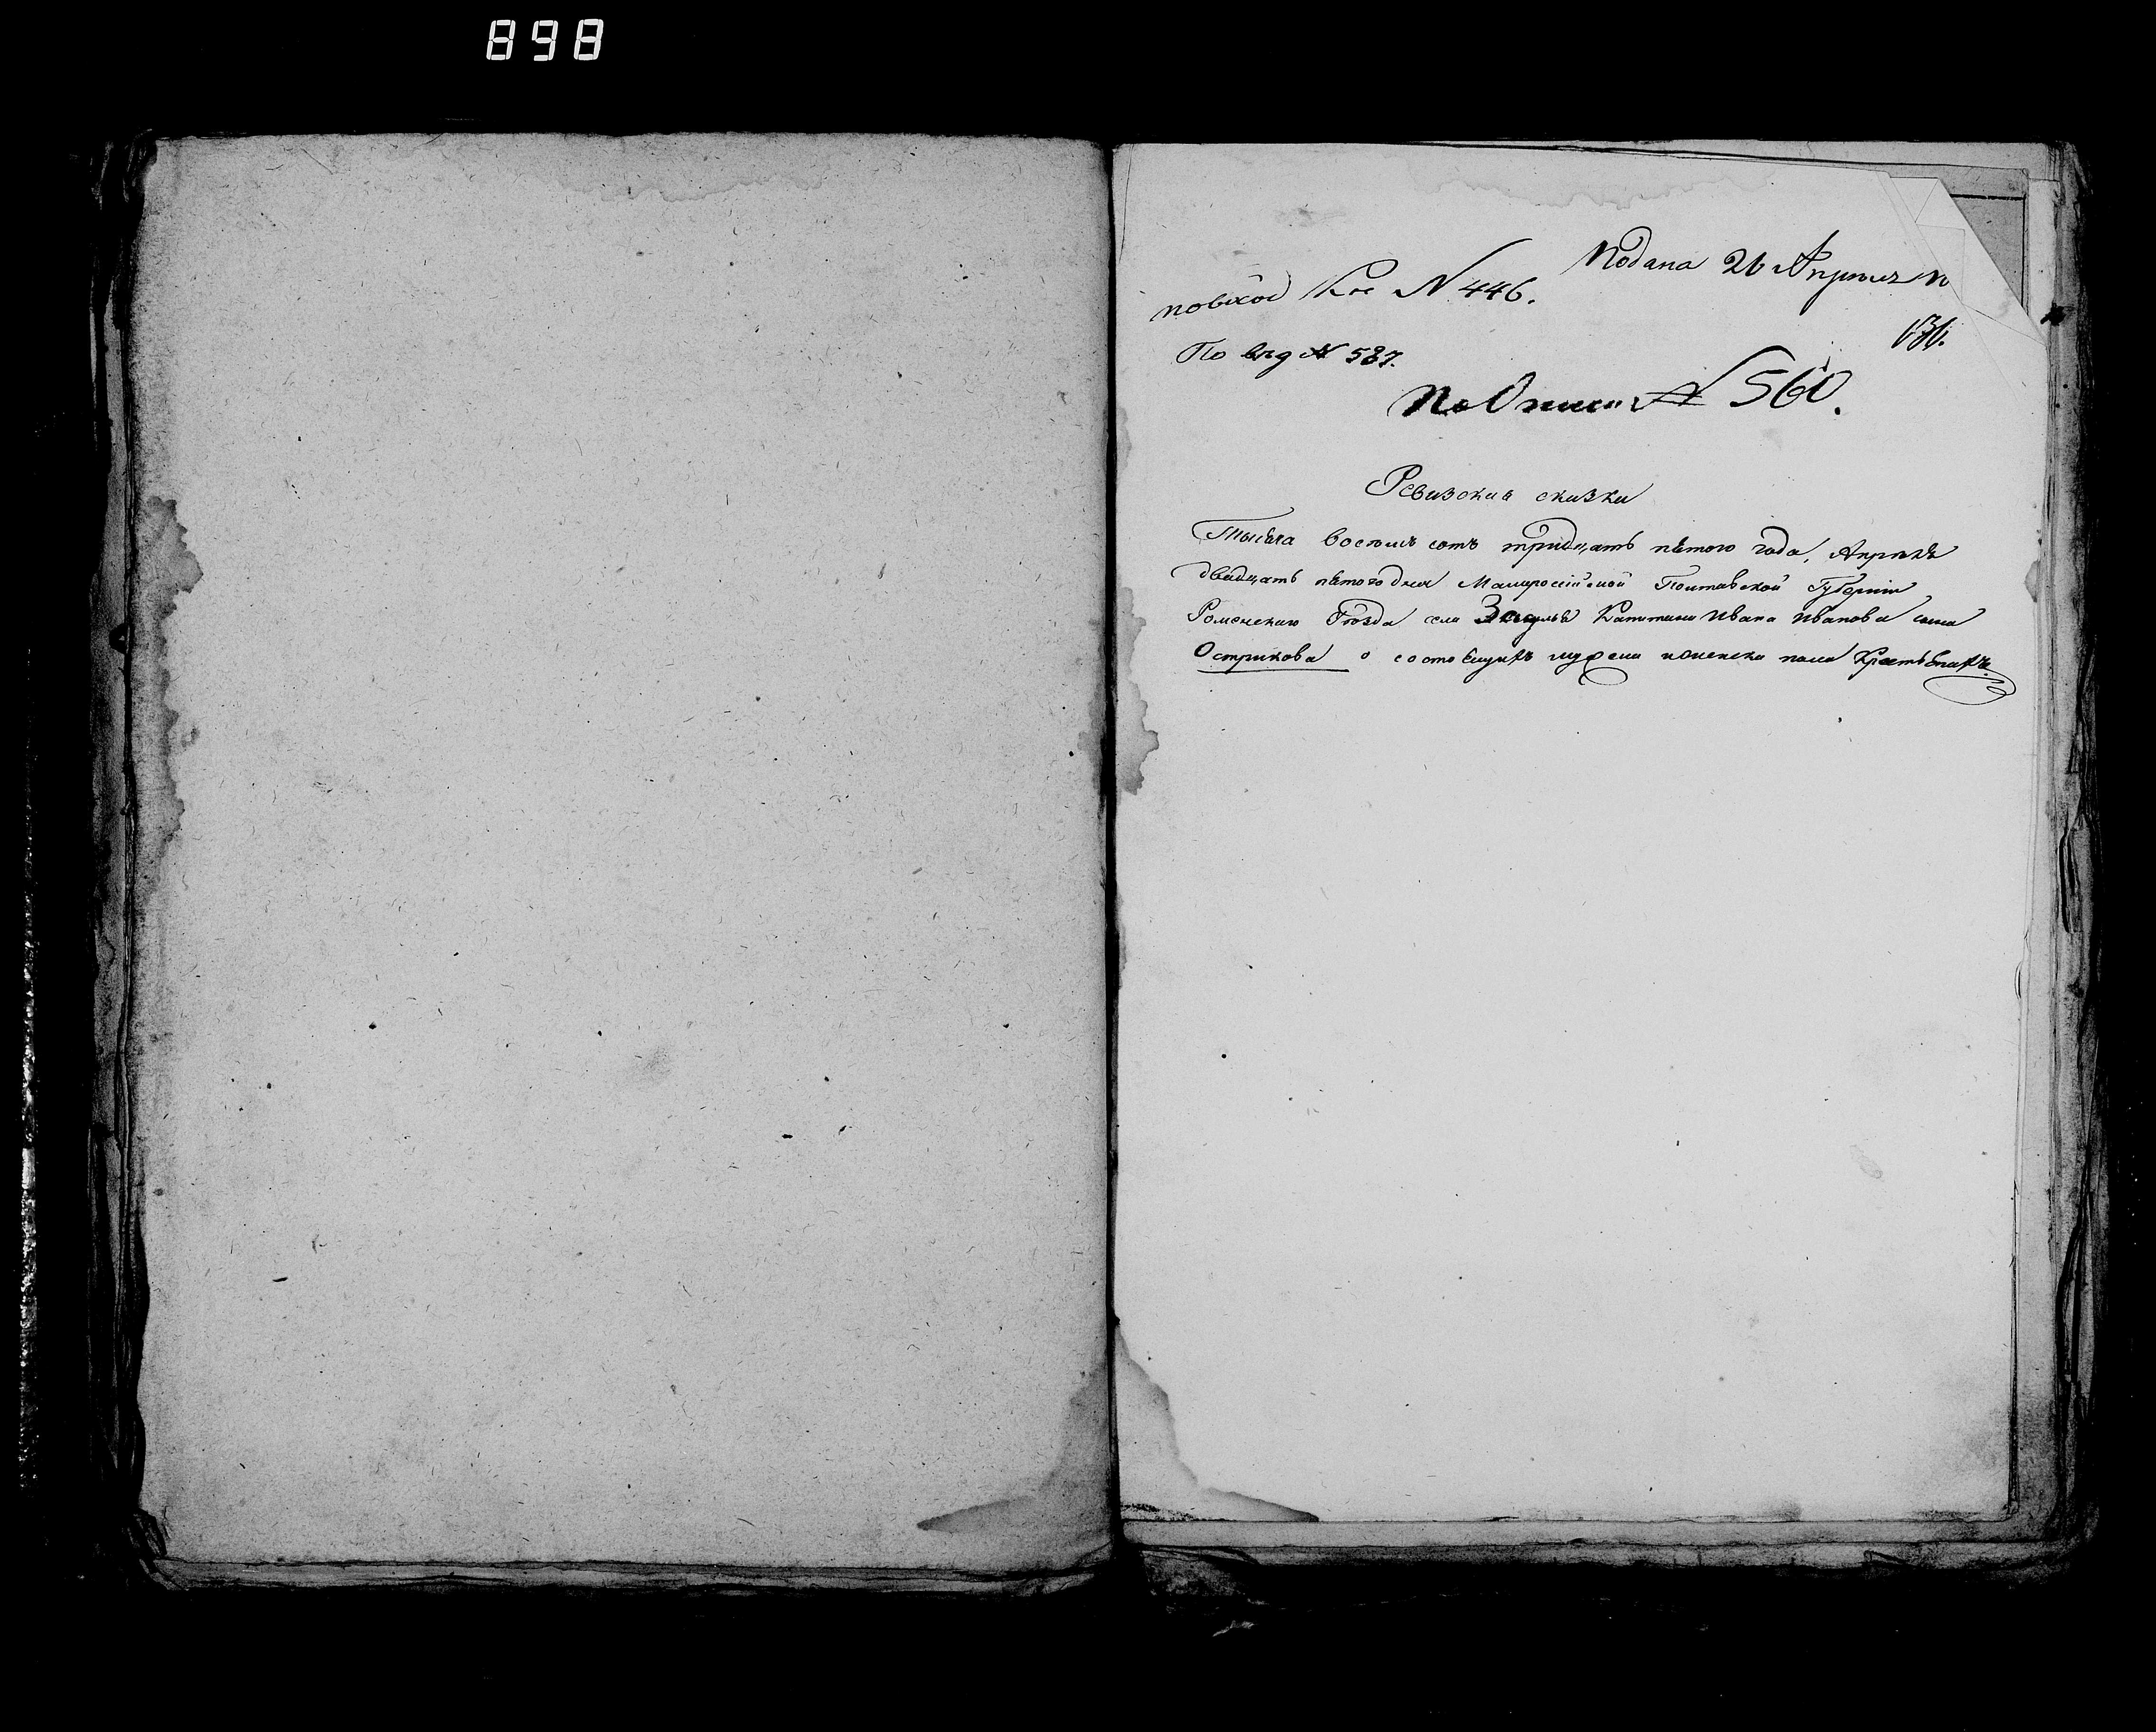 898
Подана 26 Апреля
по вход Кос № 446.
По вхд № 587.
По Описи № 560.
Ревизская сказка
Тысяча восемь сотъ тридцать пятого года, Апреля
двадцать пятого дня Малороссійской Полтавской Губерніи
Роменскаго Повѣта села Засулья Капитана Ивана Иванова сына
Острикова о состоящихъ мужеска и женска пола Крестьянахъ